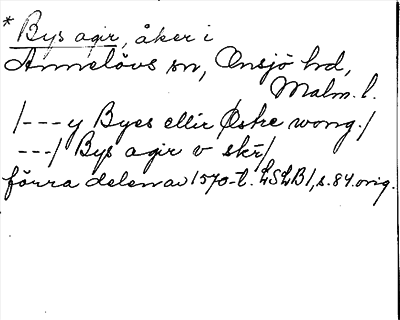 * Bys agir, åker i
Annelövs sn, Onsjö hd,
Malm. l.
/---y Byes ellir Østre wong./
---/ Bys agir v skr/
förra delen av 1570-t. LSLB1, s. 84 orig.